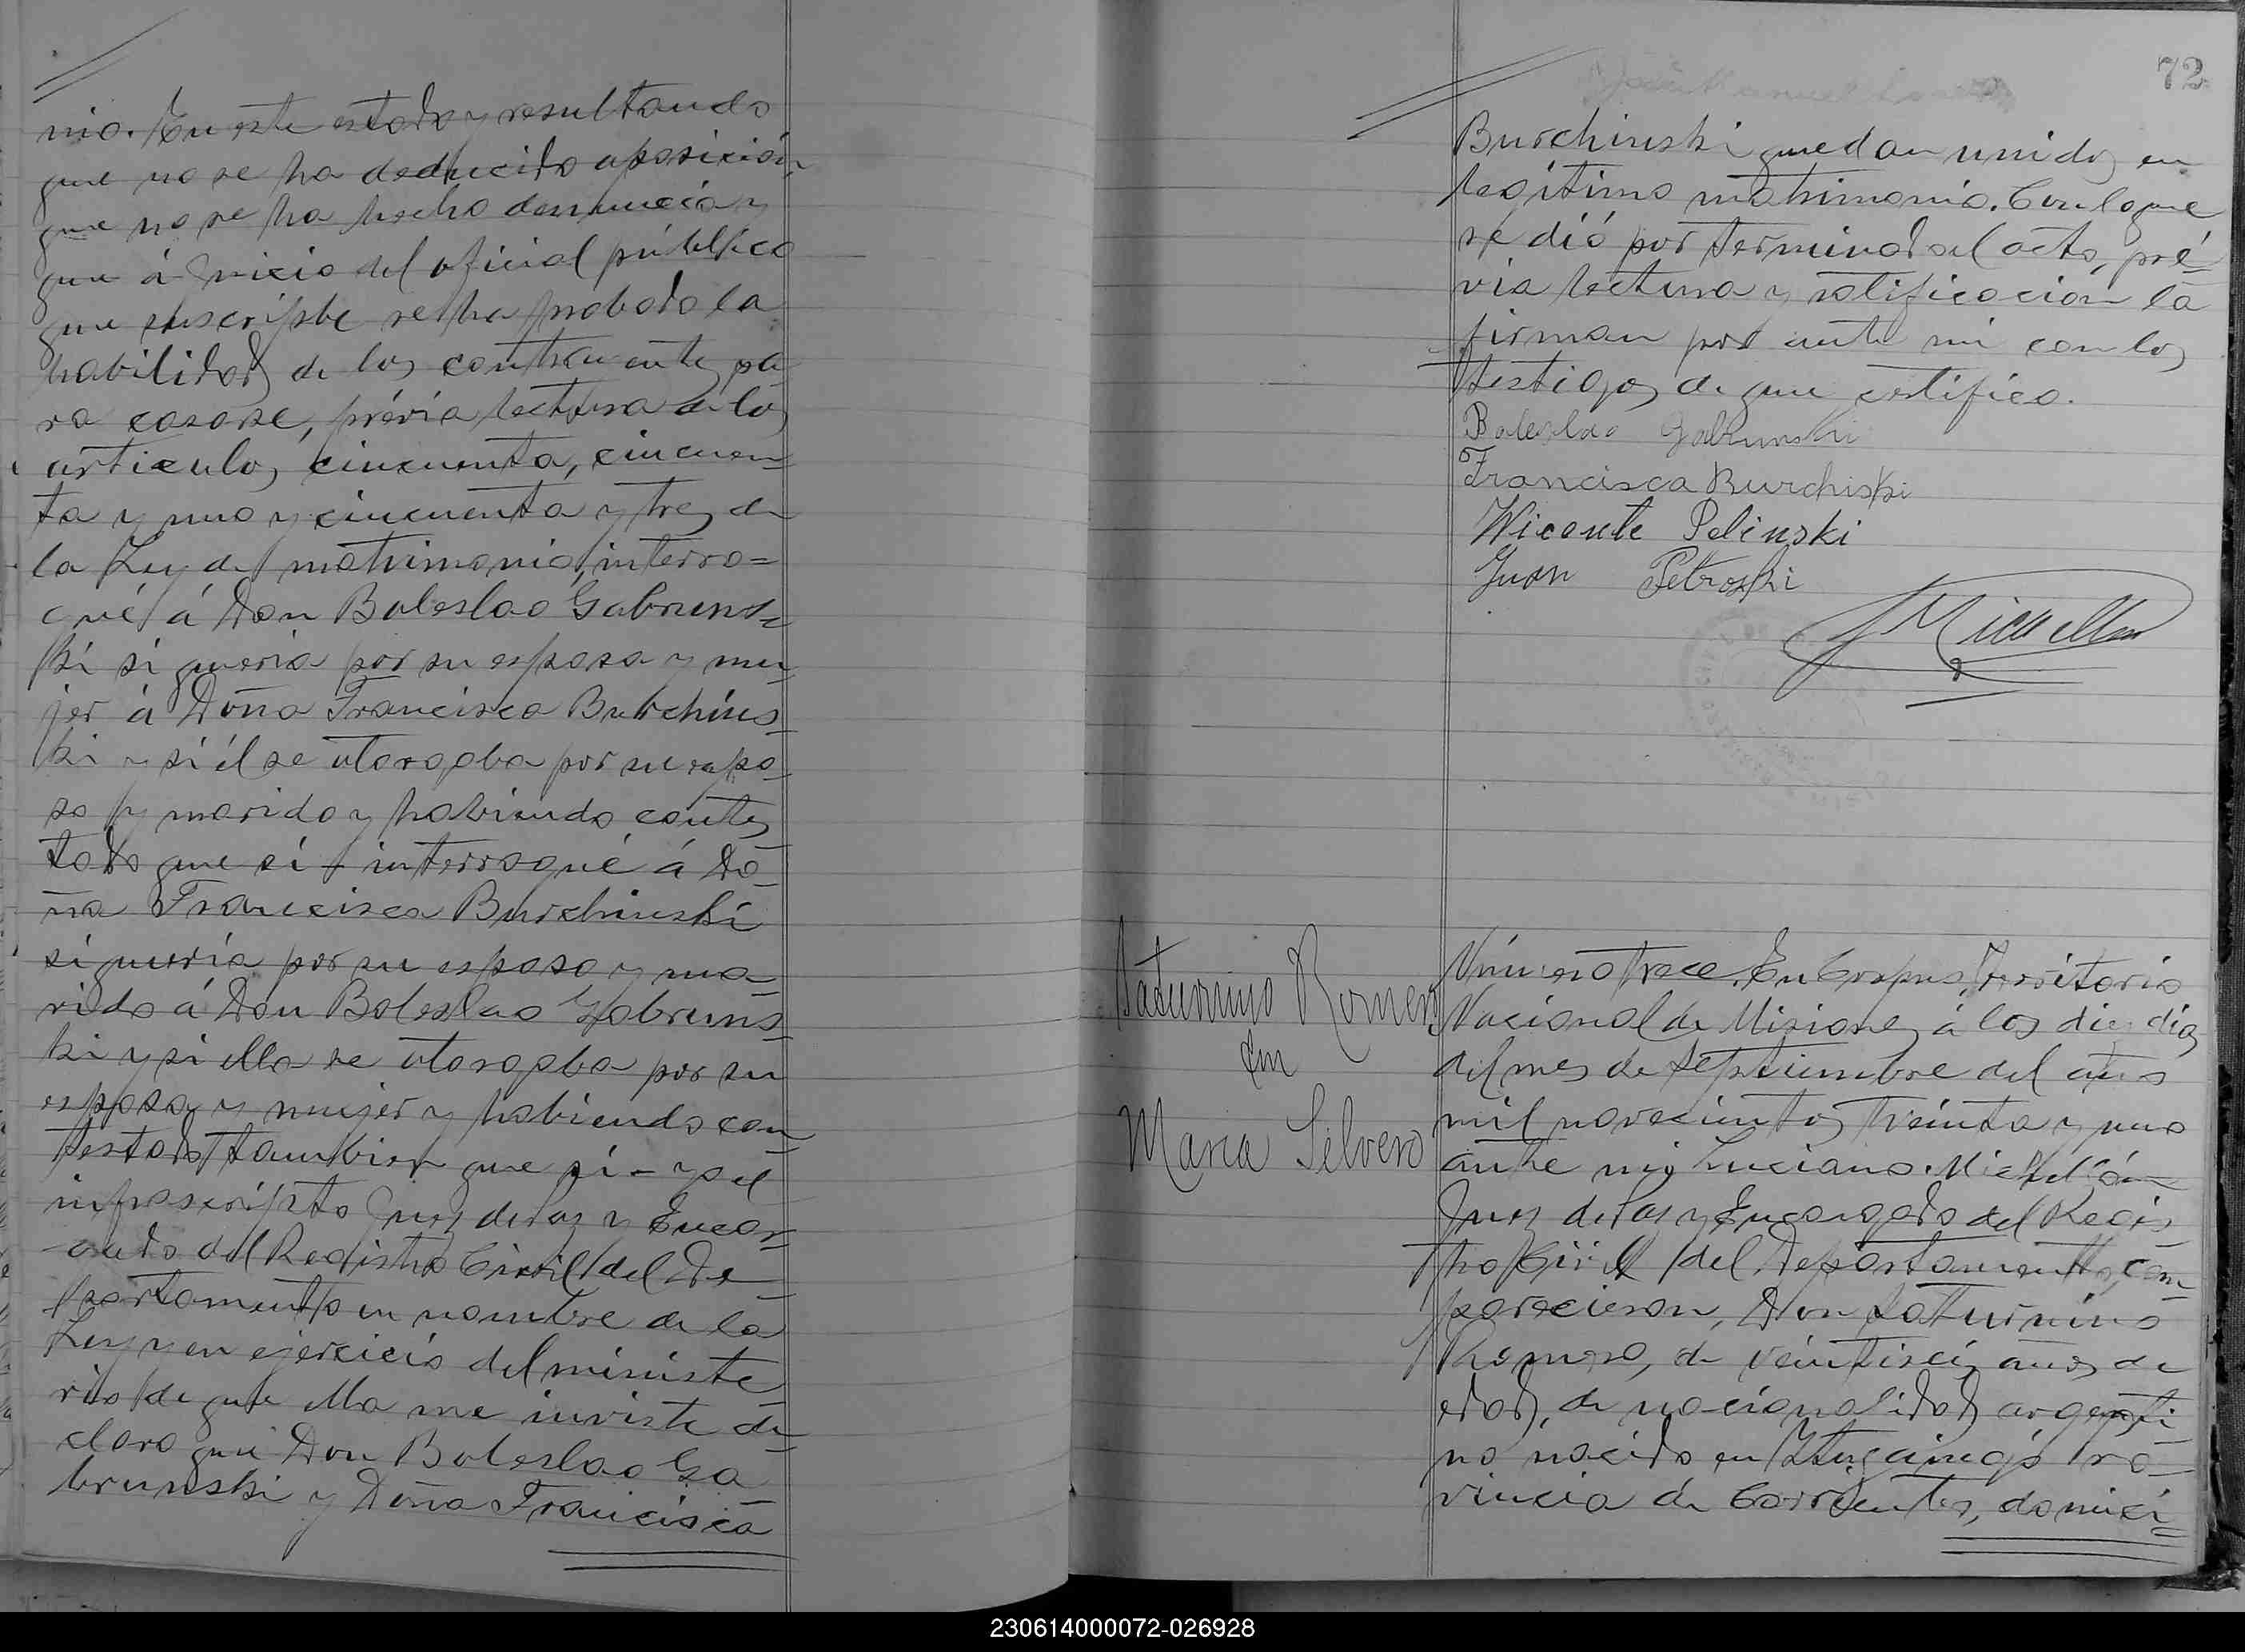 nio. En este estado y resultando
que no se ha deducido oposición
que no se ha hecho denuncia y
que á juicio del oficial público
que suscribe se ha probado la
habilidad de los contrayentes pa-
ra casarse, prévia lectura de los
articulos cincuenta, cincuen-
ta y uno y cincuenta y tres de
la Ley de matrimonio, interro=
gué á Don Boleslao Gabruns=
ki si queria por su esposa y mu-
jer á Doña Francisca Burchins-
ki y si él se otorgaba por su espo-
so y marido y habiendo contes
tado que sí - interrogué á Do-
ña Francisca Burchinski
si queria por su esposo y ma-
rido á Don Boleslao Gabruns-
ki y si ella se otorgaba por su
esposa y mujer y habiendo con-
testado tambien que sí - y o el
infrascripto Juez de Paz y Encar-
gado del Registro Civil del De-
partamento en nombre de la
Ley y en ejercicio del ministe-
rio de que ella me inviste de-
claro que Don Boleslao Ga-
brunski y Doña Francisca
72
Burchinski quedan unidos en
legítimo matrimonio. Con lo que
se dió por terminado el acto, pré-
via lectura y ratificacion la
firman por ante mi con los
testigos de que certifico.
Boleslao Gabrunski
Francisca Burchiski
Wicente Pelinski
Juan Petroski
Saturnino Romero
con
Maria Silvero
Número trece. En Corpus, Territorio
Nacional de Misiones á los diez dias
del mes de Septiembre del año
mil novecientos treinta y uno
ante mi Luciano Michellón
Juez de Paz y Encargado del Regis-
tro Civil del Departamento, com-
parecieron, Don Saturnino
Romero, de veintiseis años de
edad, de nacionalidad argenti-
no nacido en Ituzaingó Pro-
vincia de Corrientes, domici=
230614000072-026928